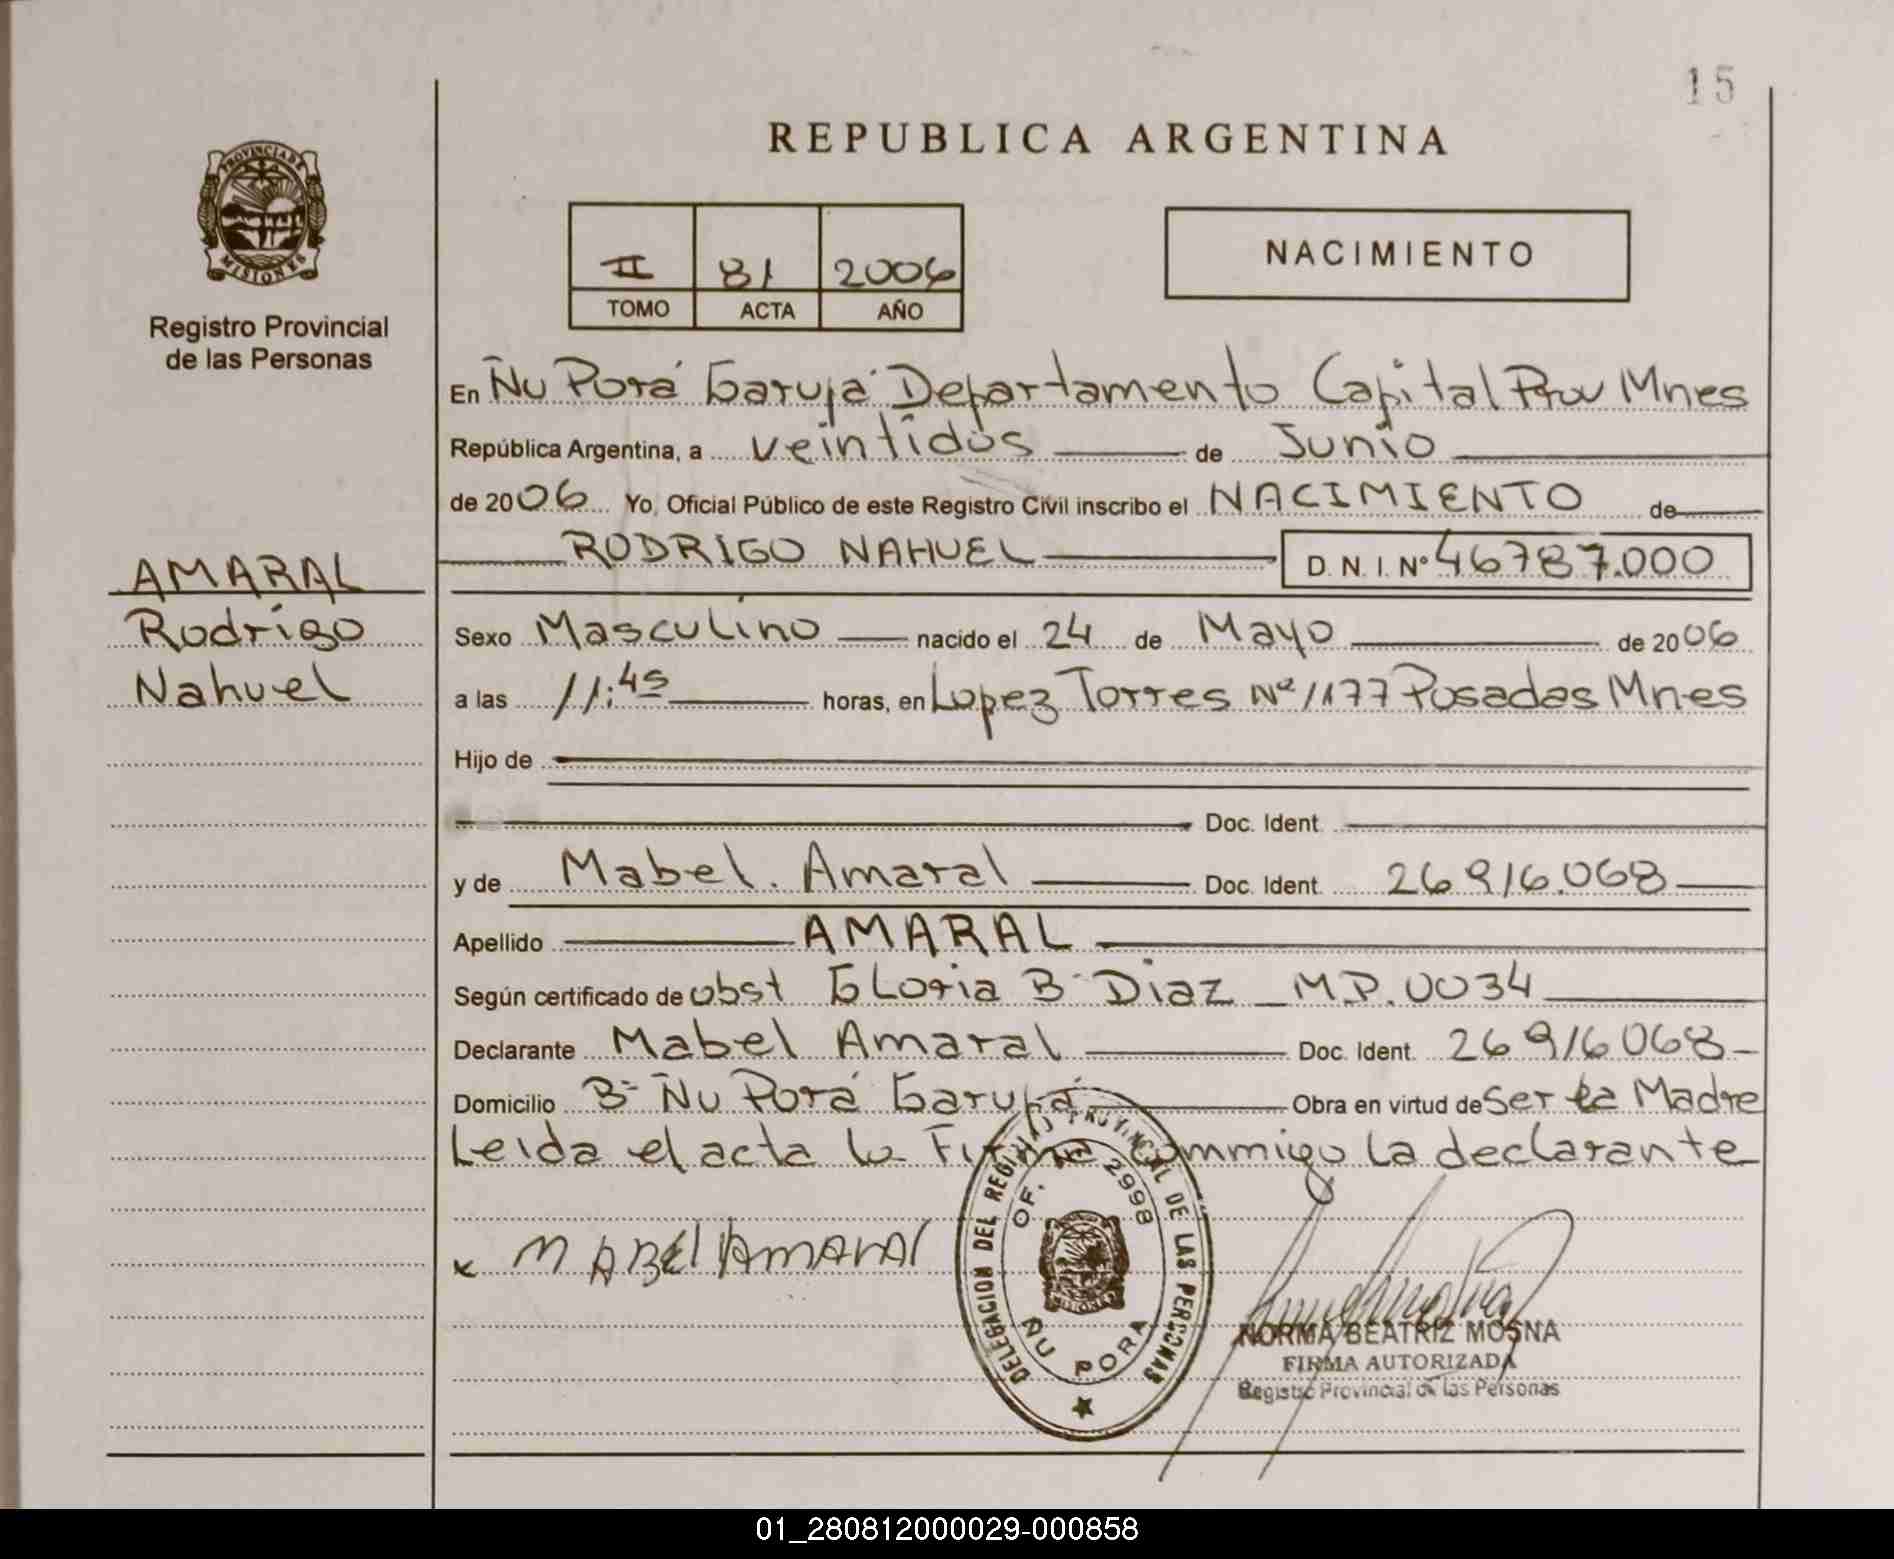 15
REPUBLICA ARGENTINA
PROVINCIA DE
MISIONES
Registro Provincial
de las Personas
II 81 2006
TOMO ACTA AÑO
NACIMIENTO
En Ñu Porá Garupá Departamento Capital Prov Mnes
República Argentina, a veintidós de Junio
de 2006 Yo, Oficial Público de este Registro Civil inscribo el NACIMIENTO de
RODRIGO NAHUEL D. N. I. Nº 46787.000
AMARAL
Rodrigo
Nahuel
Sexo Masculino nacido el 24 de Mayo de 2006
a las 11:45 horas, en Lopez Torres Nº 1177 Posadas Mnes
Hijo de
Doc. Ident.
y de Mabel. Amaral Doc. Ident. 26916.068
Apellido AMARAL
Según certificado de obst Gloria B Diaz M.P. 0034
Declarante Mabel Amaral Doc. Ident. 26916068
Domicilio Bº Ñu Porá Garupá Obra en virtud de Ser la Madre
Leida el acta la Firma Commigo la declarante
x MABEl AMARAl
DELEGACION DEL REGISTRO PROVINCIAL DE LAS PERSONAS
OF. 2998
MISIONES
ÑU PORA
NORMA BEATRIZ MOSNA
FIRMA AUTORIZADA
Registro Provincial de las Personas
01_280812000029-000858